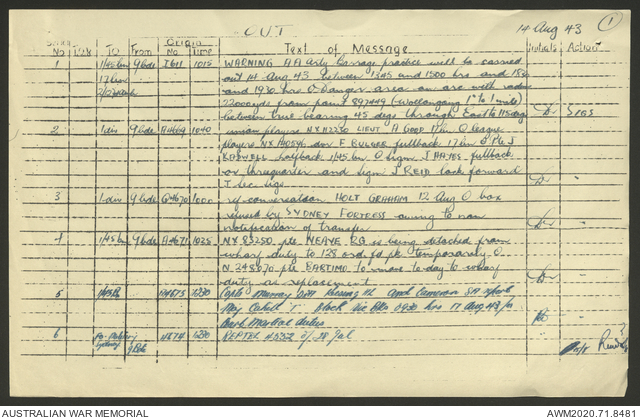 OUT
14 Aug 43 1
Serial No T.O.R. TO From Origin No Time Text of Message Initials Action
1 1/45 bn 9 bde I611 1015 WARNING A A Arty Barrage practice will be carried
17 bn out 14 Aug 43. Between 1345 and 1500 hrs and
and 1930 hrs O Danger area an arc with radius
22000yds from point 897449 (Wollongong 1" to 1 mile)
between true bearing 45 degs through East to 115 deg Sigs
2 1 div 9 bde 1040 union players NX112230 LIEUT A GOOD 17 bn O league
players NX 140596 dvr F BULGER fullback 17 bn O Pte J
KASWELL halfback 1/45 bn O Sigm J HAYES fullback
or threquarter and sigm J REID lock forward
J sec sigs
3 1 div 9 bde 1000 ref conversation HOLT GRAHAM 12 Aug O box
issued by SYDNEY FORTRESS owing to non
notification of transfer
4 1/45 bn 9 bde A4671 1025 NX 85250 pte NEAVE RG is being detached from
wharf duty to 128 ord fd pk temporarily O
N 248070 pte BARTIMO to move to-day to wharf
duty as replacement
5 1230 Capts Murray and Cameron SA report
hrs 17 Aug 43 for
Court Martial duties
6 Sydney 9 Bde 4674 1230 REPTEL 4552
AUSTRALIAN WAR MEMORIAL AWM2020.71.8481